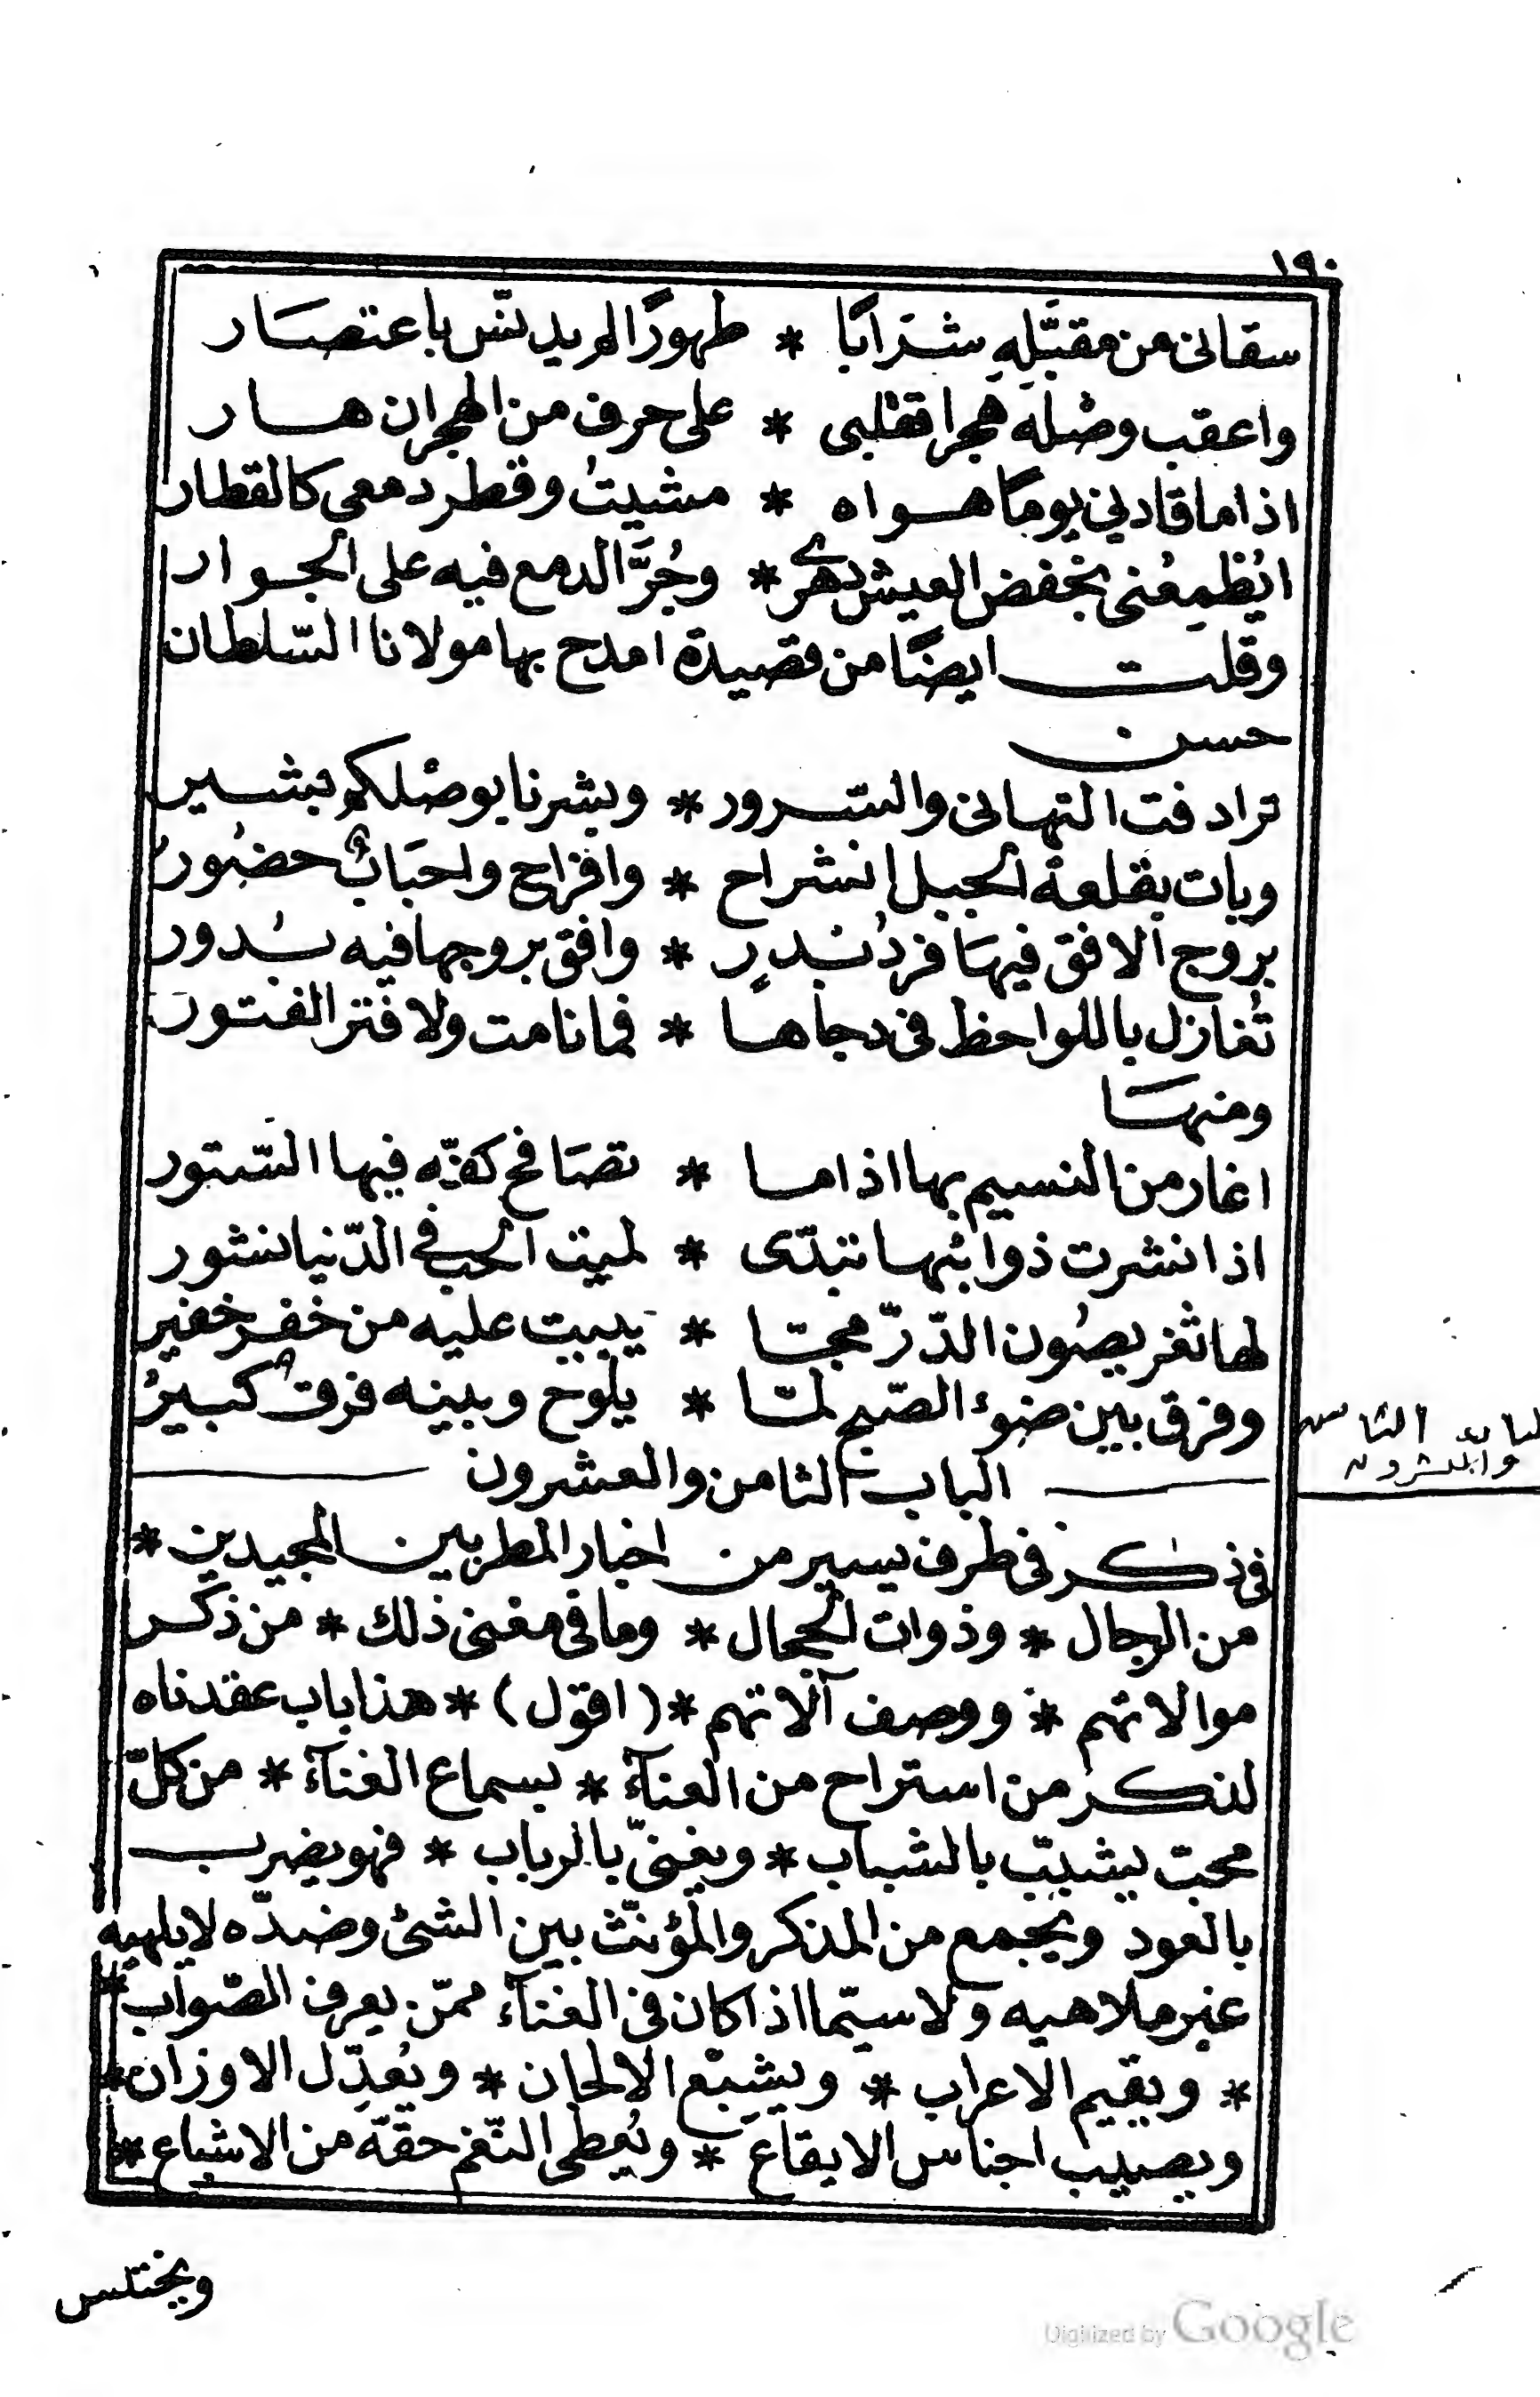 ١٩٠
سقانى من مقبَّلِهِ شرَابًا * طهورًا لم يدنّس باعتصار
واعقب وصْله هجرا فقلبى * على حرف من الهجران هار
اذا ما قادنى يومًا هواه * مشيتُ وقطر دمعى كالقطار
ايُطْمِعُنى بخفض العيش دهرى * وجُرَّ الدمع فيه على الجوار
وقلت ايضًا من قصيدة امدح بها مولانا السّلطان
حسن
ترادفت التهانى والسّرور * وبشرنا بوصْلكم بشير
وبات بقلعة الجبل انشراح * وافراح واحبَابٌ حضُورُ
بروج الافق فيهَا فردُ بَدرٍ * وافق بروجها فيه بُدور
تُغازل باللواحظ فى دجاها * فما نامت ولا فتر الفتور
ومنهَا
اغار من النسيم بها اذا ما * تصَافح كفّه فيها السّتور
اذا نشرت ذوائبها تبدّى * لميت الحب فى الدّنيا نشور
لها ثغر يصُون الدّرّ عجبًا * يبيت عليه من خفر خفير
وفرق بين ضوء الصّبح لمّا * يلوح وبينه فرقٌ كبيرُ
الباب الثامن والعشرون
الباب الثامن
والعشرون
فى ذكر فى طرف يسير من اخبار المطربين المجيدين *
من الرجال * وذوات الحجال * وما فى معنى ذلك * من ذكر
موالاتهم * ووصف آلاتهم * (اقول) * هذا باب عقدناه
لذكر من استراح من العنآء * بسماع الغنآء * من كلّ
محبّ يشبّب بالشباب * ويغنّى بالرباب * فهو يضرب
بالعود ويجمع من المذكر والمؤنّث بين الشئ وضدّه لا يلهيه
غير ملاهيه ولا سيّما اذا كان فى الغنآء ممّن يعرف الصّواب *
* ويقيم الاعراب * ويشبّع الالحان * ويُعدِّل الاوزان *
ويصيب اجناس الايقاع * ويُعطى النّغم حقّه من الاشباع *
ويختلس
Digitized by Google